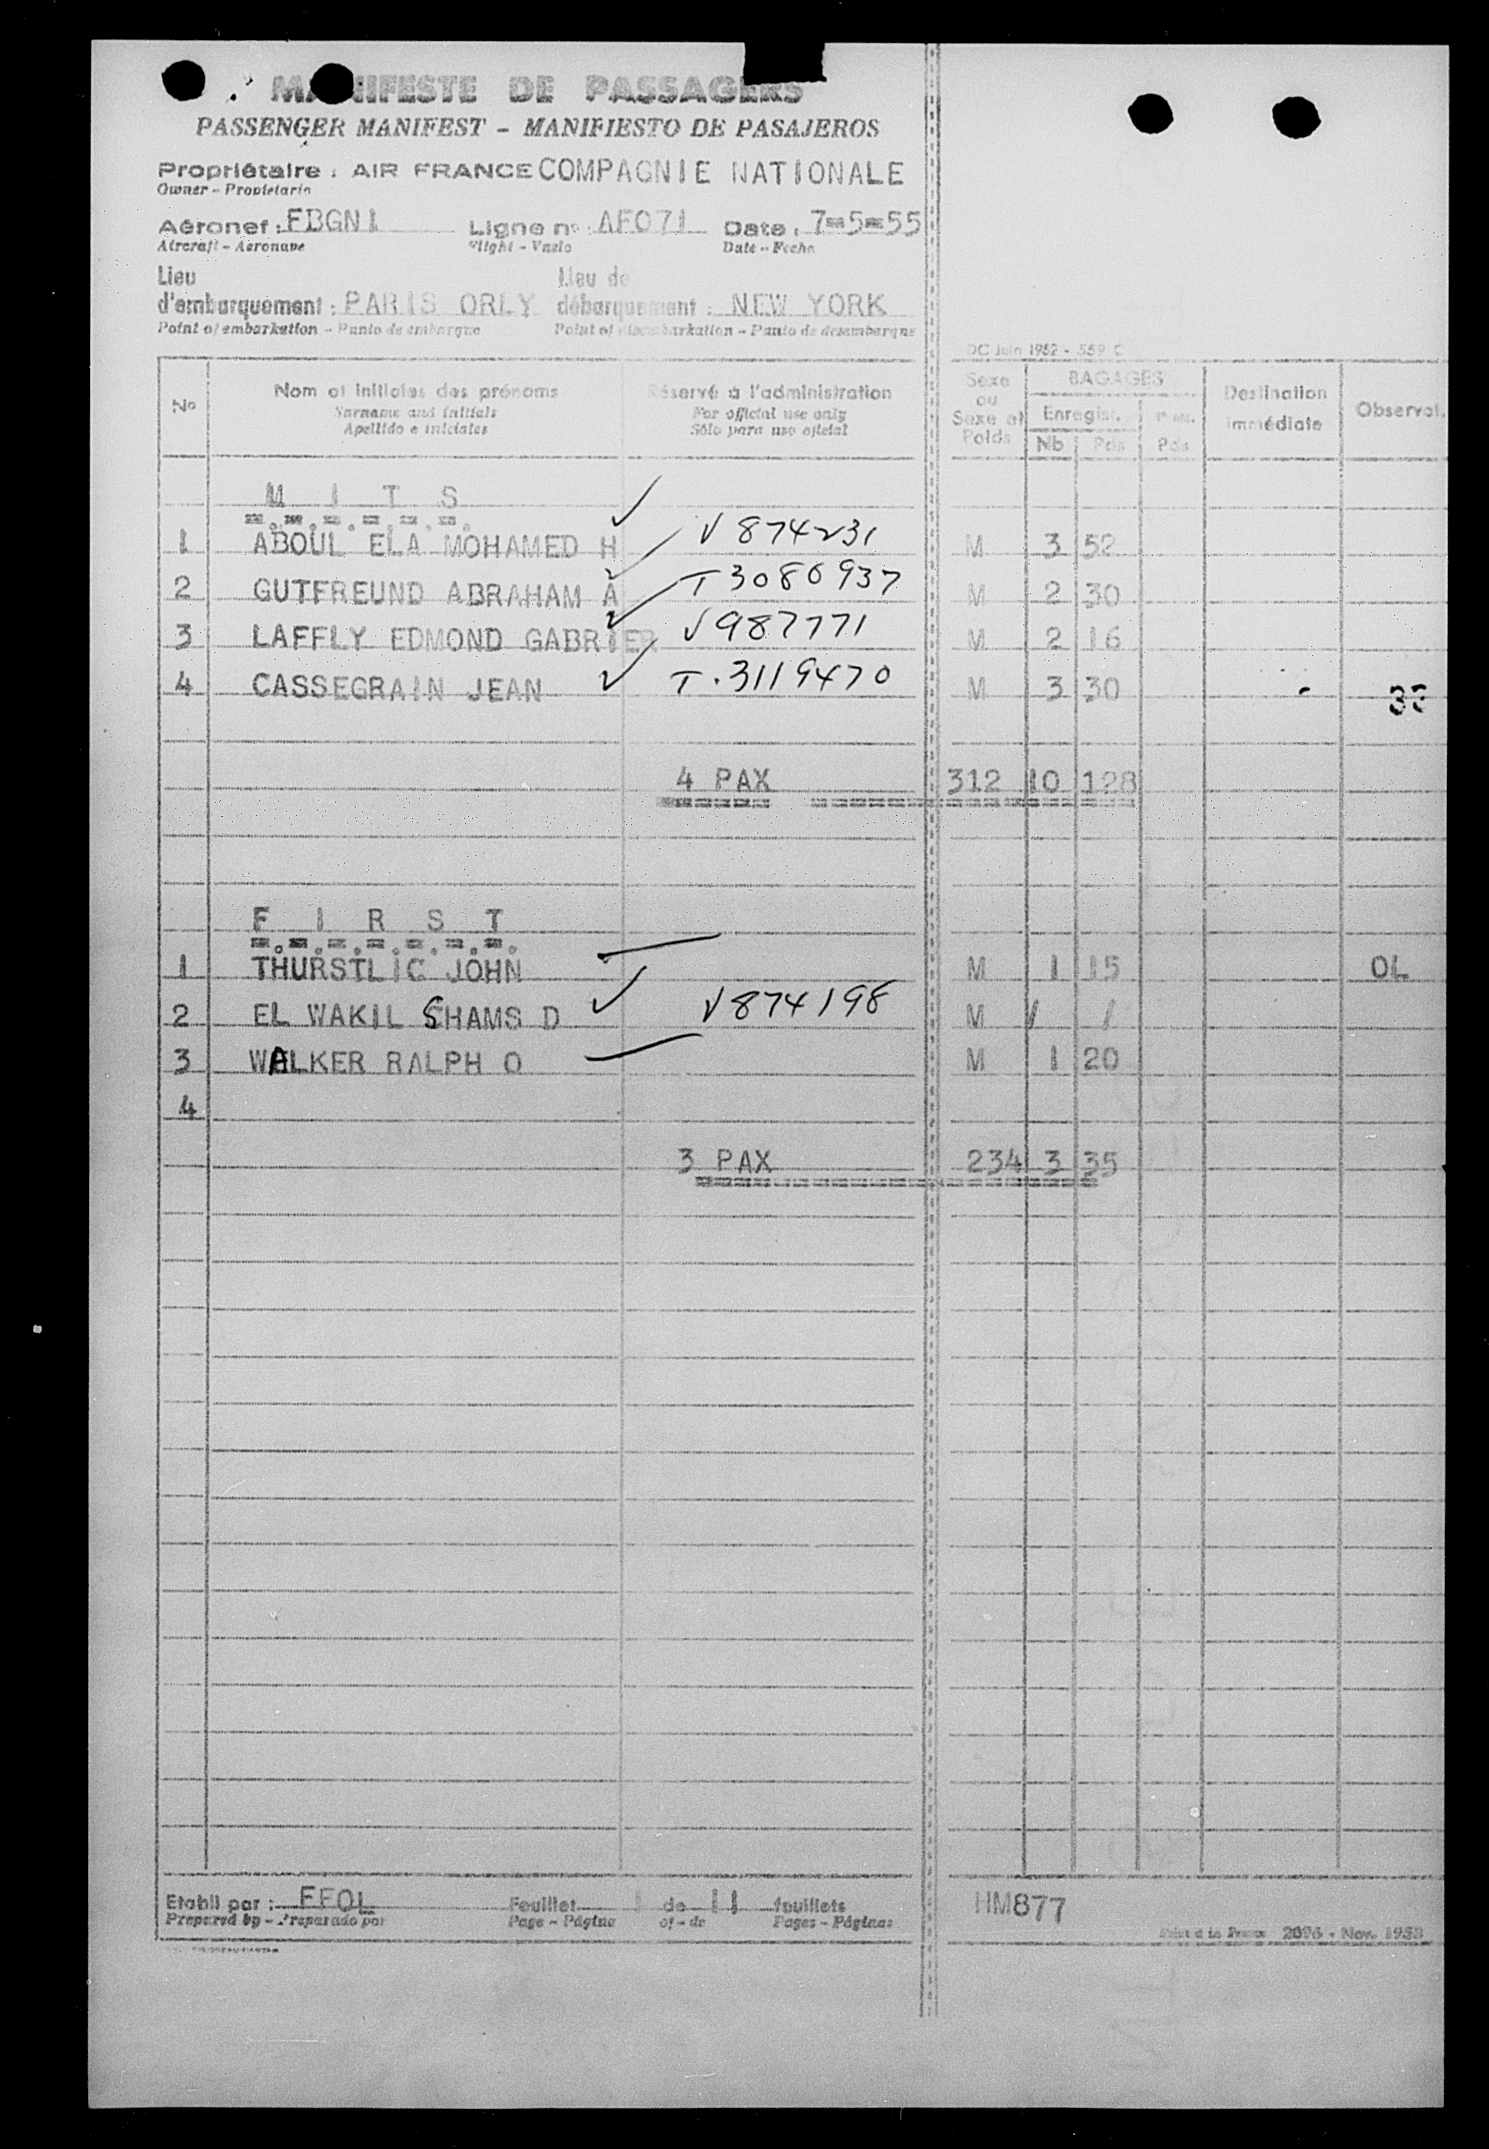 MANIFESTE DE PASSAGERS
PASSENGER MANIFEST - MANIFIESTO DE PASAJEROS
Propriétaire : AIR FRANCE COMPAGNIE NATIONALE
Owner - Propietario
Aéronef : FBGNI Ligne n° AF071 Date : 7=5=55
Aircraft - Aeronave Flight - Vuelo Date - Fecha
Lieu Lieu de
d'embarquement : PARIS ORLY débarquement : NEW YORK
Point of embarkation - Punto de embarque Point of disembarkation - Punto de desembarque
DC Juin 1952 - 559 C
N° Nom et initiales des prénoms Réservé à l'administration Sexe ou Sexe et Poids BAGAGES Destination immédiate Observat.
Surname and initials For official use only Enregist.
Apellido e iniciales Sólo para uso oficial Nb Pds Pds
M I T S
1 ABOUL ELA MOHAMED H V 874231 M 3 52
2 GUTFREUND ABRAHAM A T 3086937 M 2 30
3 LAFFLY EDMOND GABRIER V 987771 M 2 16
4 CASSEGRAIN JEAN T. 3119470 M 3 30
4 PAX 312 10 128
F I R S T
1 THURSTLIC JOHN M 1 15 OL
2 EL WAKIL SHAMS D V 874198 M / /
3 WALKER RALPH O M 1 20
4
3 PAX 234 3 35
Etabli par : FFOL Feuillet 1 de 11 feuillets HM877
Prepared by - Preparado por Page - Página of - de Pages - Páginas 2096 - Nov. 1953